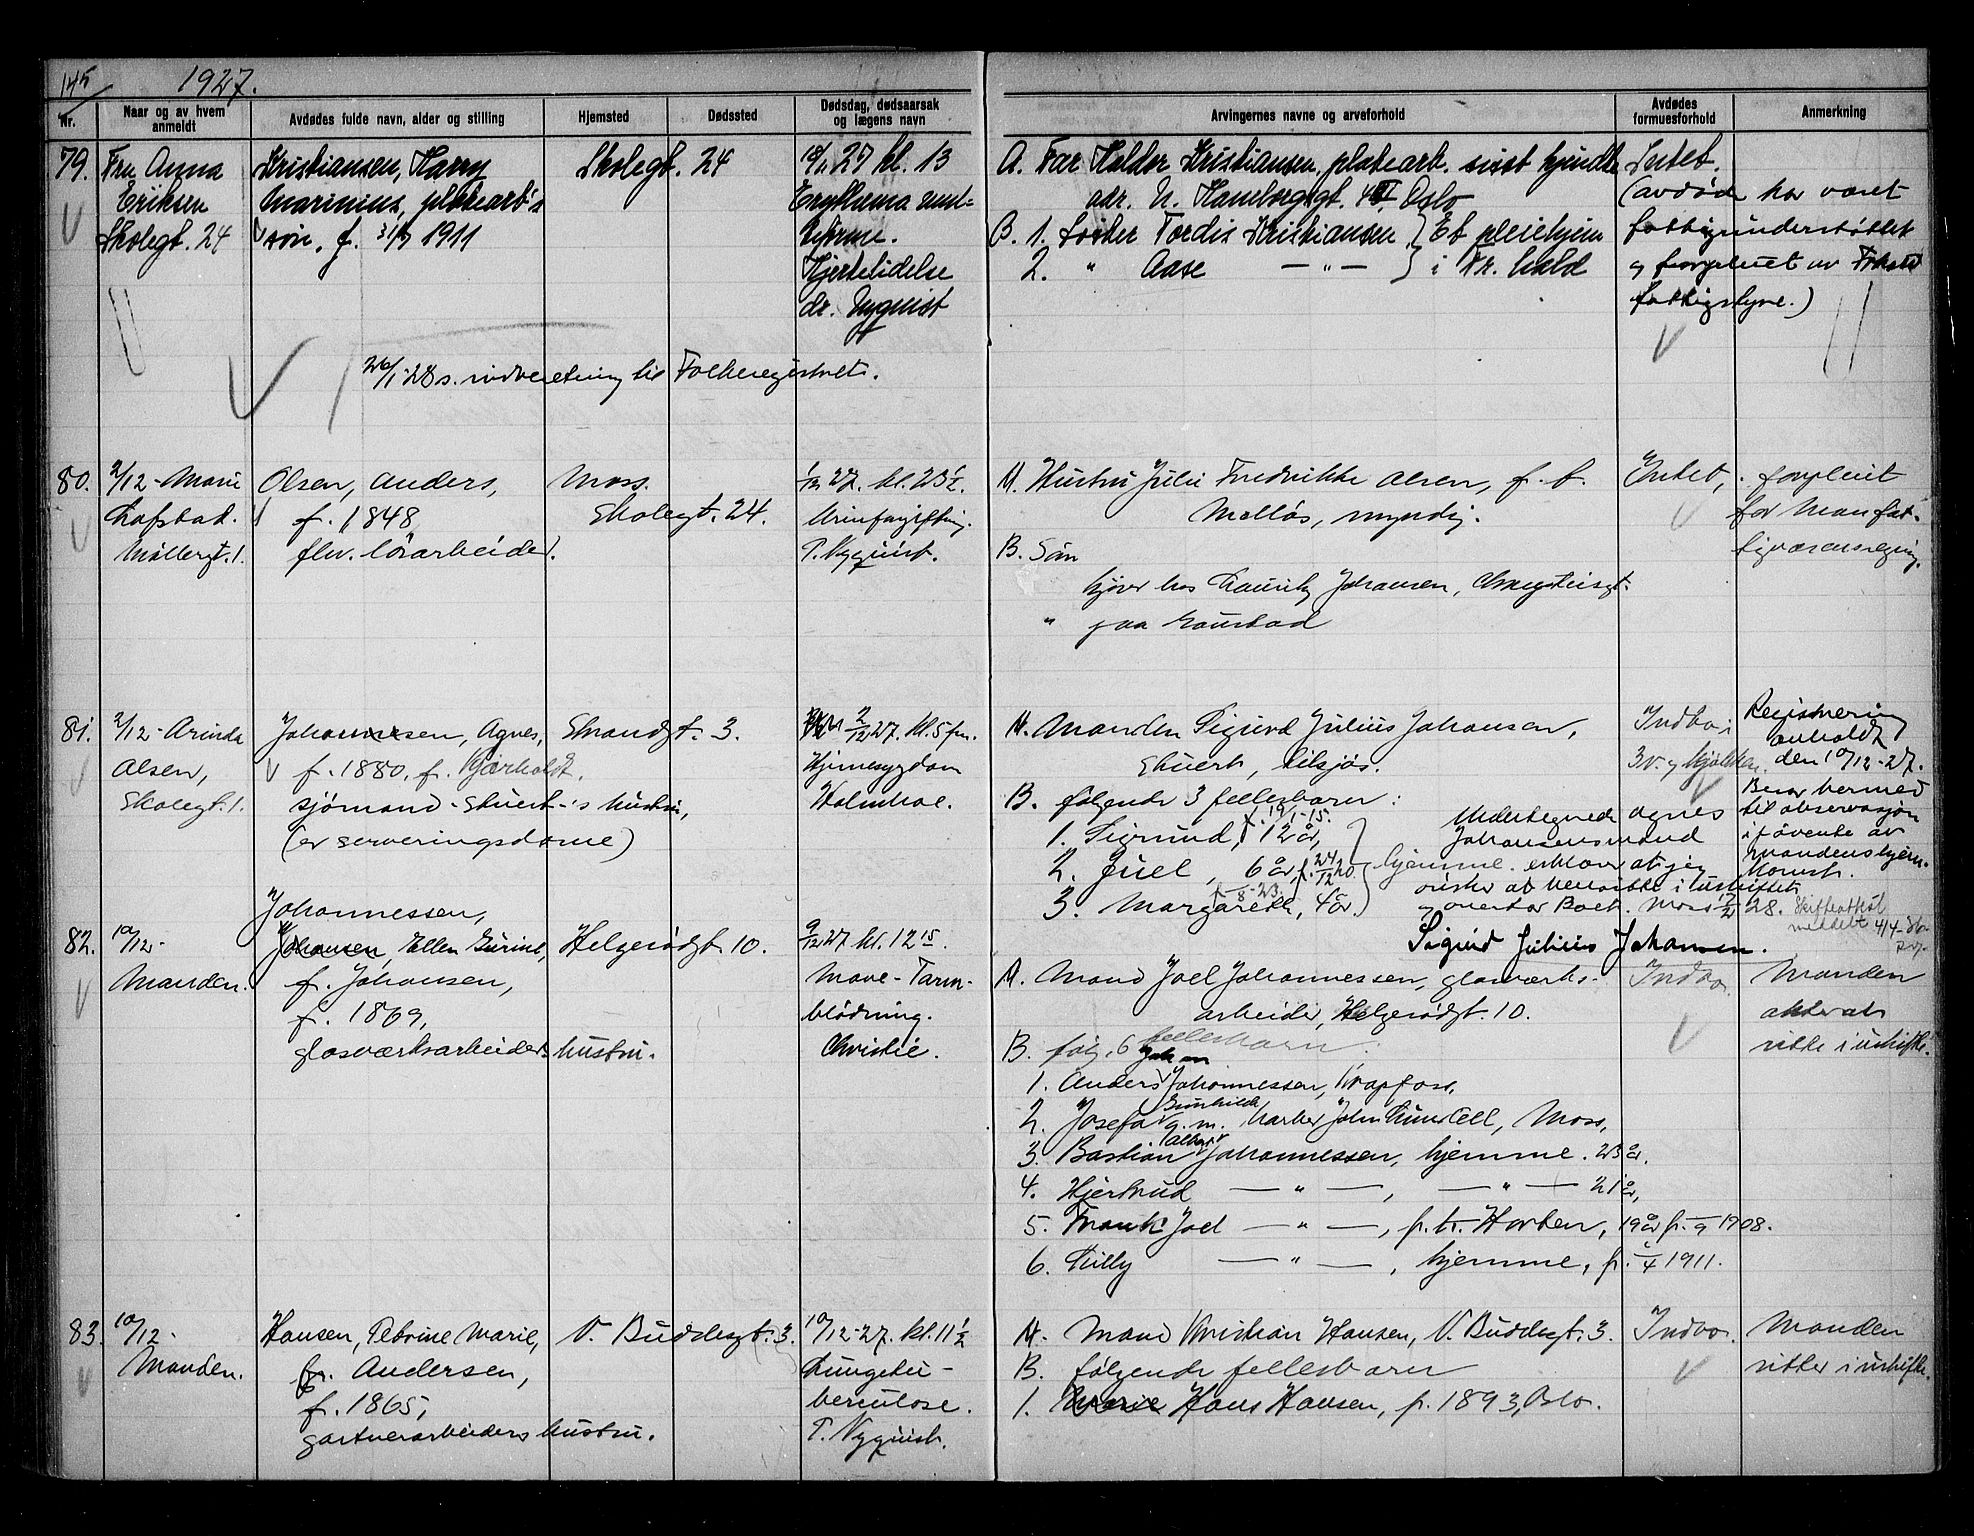 145
1927.
Nr.
Naar og av hvem anmeldt
Avdødes fulde navn, alder og stilling
Hjemsted
Dødssted
Dødsdag, dødsaarsak og lægens navn
Arvingernes navne og arveforhold
Avdødes formuesforhold
Anmerkning
79.
Fru Anna
Eriksen
Skolegt. 24
Kristiansen, Harry
Marinius, platearb's
søn, f. 1911
Skolegt. 24
27 kl. 13
Erythema
Hjertelidelse
dr. Nyquist
A. Far Halder Kristiansen, platearb. sidst kjendte
adr. N. Hansborggt. Oslo
B. 1. Søster Tordis Kristiansen } Et pleiehjem
2. " Aase — " — } i Fr. hald
Intet.
(avdøde har været
fattigunderstøttet
og forpleiet av
fattigstyre.)
26/1 28 s. indberetning til Folkeregistret.
80.
2/12 - Marie
Lofstad.
Møllergt. 1.
Olsen, Anders,
f. 1848,
flv. lörarbeider.
Moss.
Skolegt. 24.
1/12 27. kl. 23 1/2.
Urinforgiftning.
T. Nyquist.
A. Hustru Julie Fredrikke Olsen, f. t.
Mellös, myndig.
B. Sön
hjöver hos Lauritz Johansen,
" paa Gaustad
Intet,
forpleiet
for Mosn fat-
tigvæsensregning.
81.
2/12 - Arinda
Olsen,
Skolegt. 1.
Johannessen, Agnes,
f. 1880, f. Gjærholdt,
sjömand - Stuert -'s hustru,
(er serveringsdame)
Strandgt. 3.
2/12 27. kl. 5 fm.
Hjernesygdom
Holmboe.
A. Manden Sigurd Julius Johansen,
Stuert, tilsjøs.
B. følgende 3 fellesbarn:
1. Sigrund, f. 19/1-15. 12 år,
2. Juel, 6 år, f. 24/12 20. } hjemme.
3. Margareth, f - 8 - 23. 4 år.
Undertegnede Agnes
Johansens mand
erklærer at jeg
önsker at hensitte i uskiftet
og overtar Boet. Moss 17/2 28.
Sigurd Julius Johansen.
Indbo i
3 v. og kjøkken.
Registrering
anholdt
den 10/12-27.
Beror hermed
til observasjon
i påvente av
mandens hjem-
komst.
Skifteattest
meddelt 4/4-
82.
10/12 -
Manden.
Johannessen,
Johansen, Ellen Gurine,
f. Johansen,
f. 1869,
glasværksarbeiders hustru.
Helgerødgt. 10.
9/12 27 kl. 12 15.
Mave - Tarm-
blödning.
Christie.
A. Mand Joel Johannessen, glasværks-
arbeider, Helgerødgt. 10.
B. følg. 6 fellesbarn:
1. Anders Johan Johannessen, Krapfoss,
2. Josefa Gunhilde g. m. Lundell, Moss,
3. Bastian Albert Johannessen, hjemme. 23 år.
4. Hjertrud — " —, — " — 21 år,
5. Frank Joel — " —, p. t. Horten, 19 år f. - 9 1908.
6. Lilly — " —, hjemme, f. - 4 1911.
Indbo.
Manden
akter at
sitte i uskifte.
83.
10/12 -
Manden.
Hansen, Petrine Marie,
f. Andersen,
f. 1865,
gartnerarbeiders hustru.
V. Buddesgt. 3.
10/12 - 27. kl. 11 1/2
Lungetu-
berculose.
T. Nyquist.
A. Mand Kristian Hansen, V. Buddesgt. 3.
B. følgende fellesbarn
1. Hans Hansen, f. 1893, Oslo.
Indbo.
Manden
sitter i uskifte.